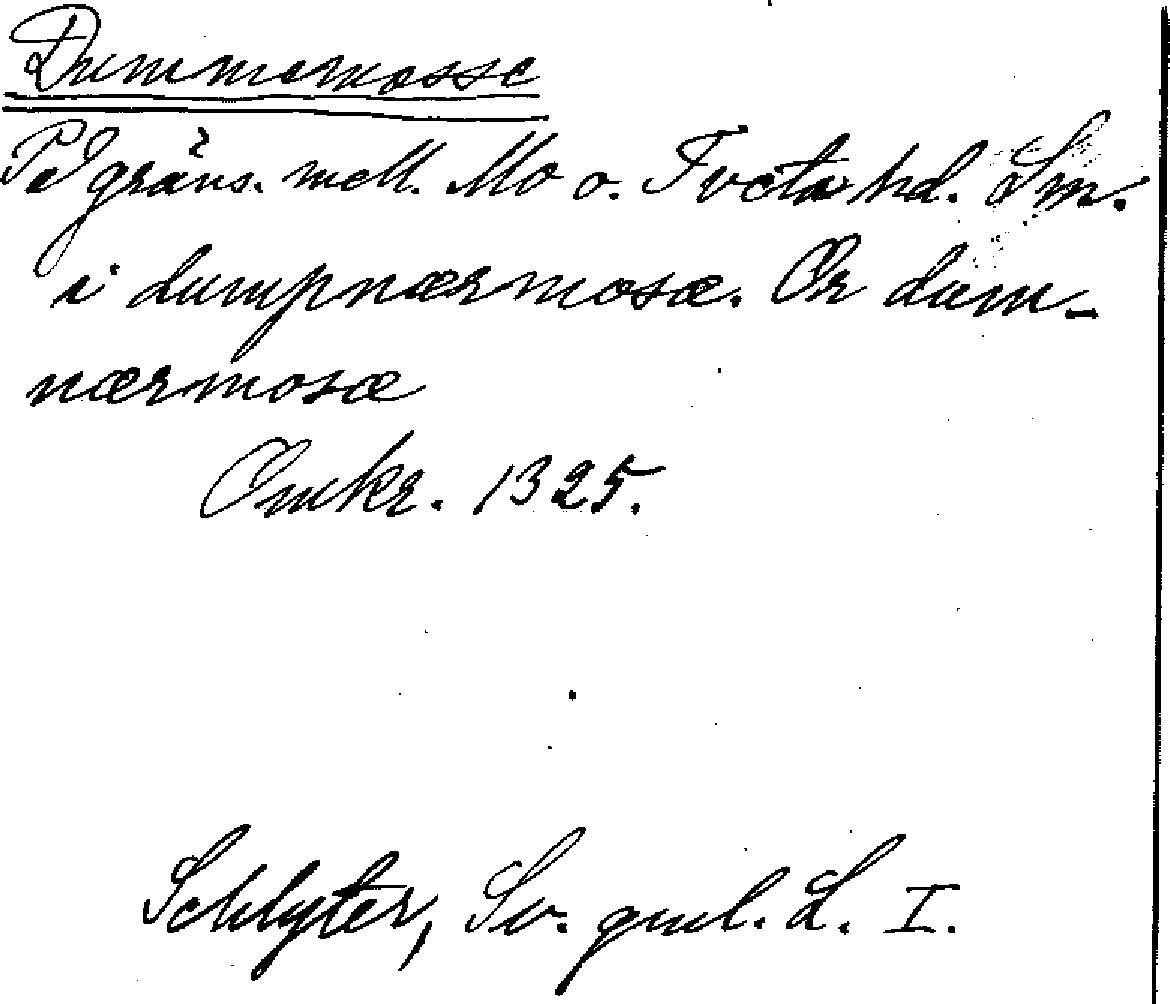 Dummemosse
På gräns. mell. Mo o. Tveta hd. Sm.
i dumpnærmosæ. Or dum-
nærmosæ
Omkr. 1325.
Schlyter, Sv. gml. L. I.